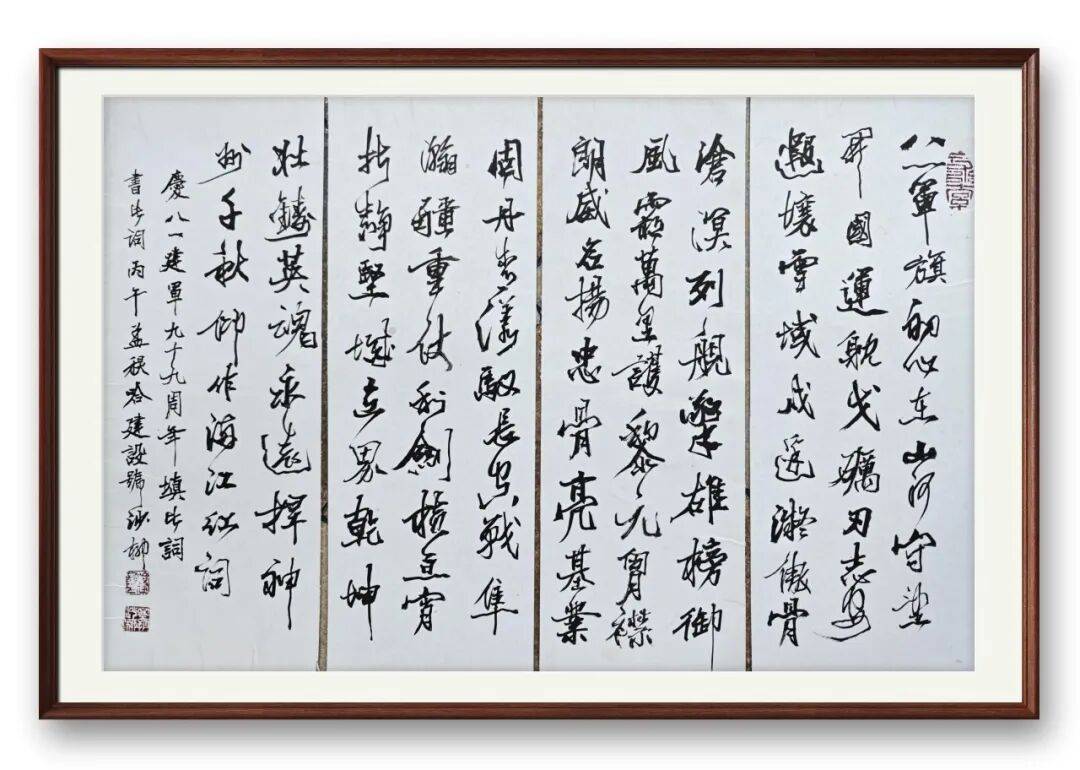 八一軍旗初心在山河守
國運執戈礪刃志安
遐壤雪域戍邊凝傲骨
滄溟列艦擎雄榜御
風霜萬里護黎元胸襟
朗威名揚忠骨亮基業
固丹馭長空戰隼
瀚疆重仗利劍橫亘霄
靜堅城立界乾坤
壯鑄英魂永遠捍神
州千秋仰作滿江紅詞
慶八一建軍九十九周年填此詞
書此詞丙午孟秋建設號柳